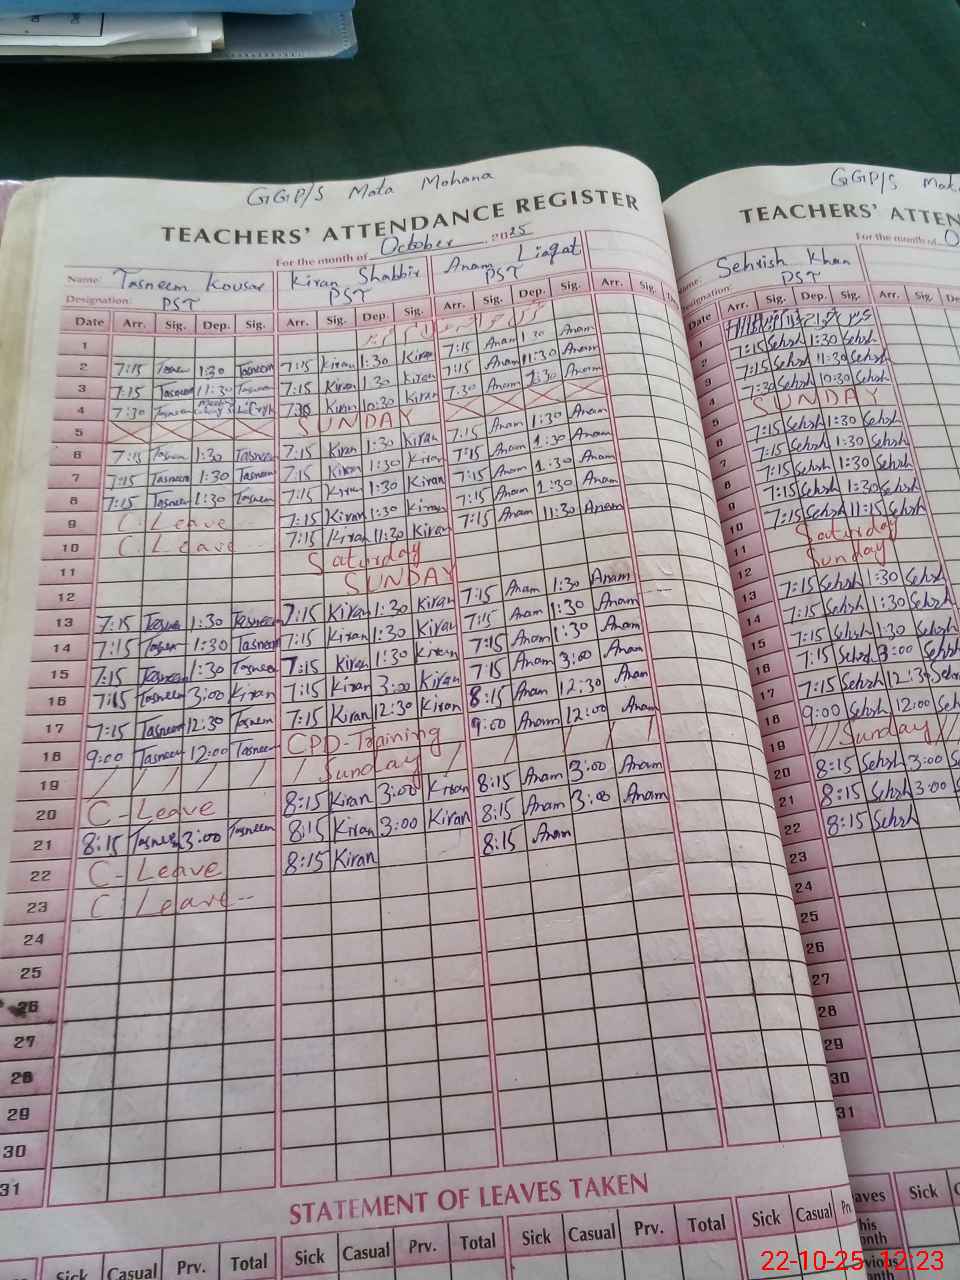 GGP/S Mata Mohana
TEACHERS' ATTENDANCE REGISTER
For the month of October 2025
Name: Tasneem Kousar Kiran Shabbir Anam Liaqat
Designation: PST PST PST
Date Arr. Sig. Dep. Sig. Arr. Sig. Dep. Sig. Arr. Sig. Dep. Sig. Arr. Sig.
1
2 7:15 Tasneem 1:30 Tasneem 7:15 Kiran 1:30 Kiran 7:15 Anam 1:30 Anam
3 7:15 Tasneem 11:30 Tasneem 7:15 Kiran 1:30 Kiran 7:15 Anam 11:30 Anam
4 7:30 Tasneem 7:30 Kiran 10:30 Kiran 7:30 Anam 1:30 Anam
5 SUNDAY
6 7:15 Tasneem 1:30 Tasneem 7:15 Kiran 1:30 Kiran 7:15 Anam 1:30 Anam
7 7:15 Tasneem 1:30 Tasneem 7:15 Kiran 1:30 Kiran 7:15 Anam 1:30 Anam
8 7:15 Tasneem 1:30 Tasneem 7:15 Kiran 1:30 Kiran 7:15 Anam 1:30 Anam
9 C-Leave 7:15 Kiran 1:30 Kiran 7:15 Anam 1:30 Anam
10 C-Leave 7:15 Kiran 11:30 Kiran 7:15 Anam 11:30 Anam
11 Saturday
12 SUNDAY
13 7:15 Tasneem 1:30 Tasneem 7:15 Kiran 1:30 Kiran 7:15 Anam 1:30 Anam
14 7:15 Tasneem 1:30 Tasneem 7:15 Kiran 1:30 Kiran 7:15 Anam 1:30 Anam
15 7:15 Tasneem 1:30 Tasneem 7:15 Kiran 1:30 Kiran 7:15 Anam 1:30 Anam
16 7:15 Tasneem 3:00 Kiran 7:15 Kiran 3:00 Kiran 7:15 Anam 3:00 Anam
17 7:15 Tasneem 12:30 Tasneem 7:15 Kiran 12:30 Kiran 8:15 Anam 12:30 Anam
18 9:00 Tasneem 12:00 Tasneem CPD-Training 9:00 Anam 12:00 Anam
19 Sunday
20 C-Leave 8:15 Kiran 3:00 Kiran 8:15 Anam 3:00 Anam
21 8:15 Tasneem 3:00 Tasneem 8:15 Kiran 3:00 Kiran 8:15 Anam 3:00 Anam
22 C-Leave 8:15 Kiran 8:15 Anam
23 C-Leave
24
25
26
27
28
29
30
31
STATEMENT OF LEAVES TAKEN
Sick Casual Prv. Total Sick Casual Prv. Total Sick Casual Prv. Total Sick Casual
GGP/S
TEACHERS'
For the month of
Sehrish Khan
Designation: PST
Date Arr. Sig. Dep. Sig. Arr. Sig.
1
2 7:15 Sehrsh 1:30 Sehrsh
3 7:15 Sehrsh 11:30 Sehrsh
4 7:30 Sehrsh 10:30 Sehrsh
SUNDAY
6 7:15 Sehrsh 1:30 Sehrsh
7 7:15 Sehrsh 1:30 Sehrsh
8 7:15 Sehrsh 1:30 Sehrsh
9 7:15 Sehrsh 1:30 Sehrsh
10 7:15 Sehrsh 11:15 Sehrsh
11 Saturday
12 Sunday
13 7:15 Sehrsh 1:30 Sehrsh
14 7:15 Sehrsh 1:30 Sehrsh
15 7:15 Sehrsh 1:30 Sehrsh
16 7:15 Sehrsh 3:00 Sehrsh
17 7:15 Sehrsh 12:30 Sehrsh
18 9:00 Sehrsh 12:00
19 Sunday
20 8:15 Sehrsh 3:00
21 8:15 Sehrsh 3:00
22 8:15 Sehrsh
23
24
25
26
27
28
29
30
31
Sick
22-10-25 12:23